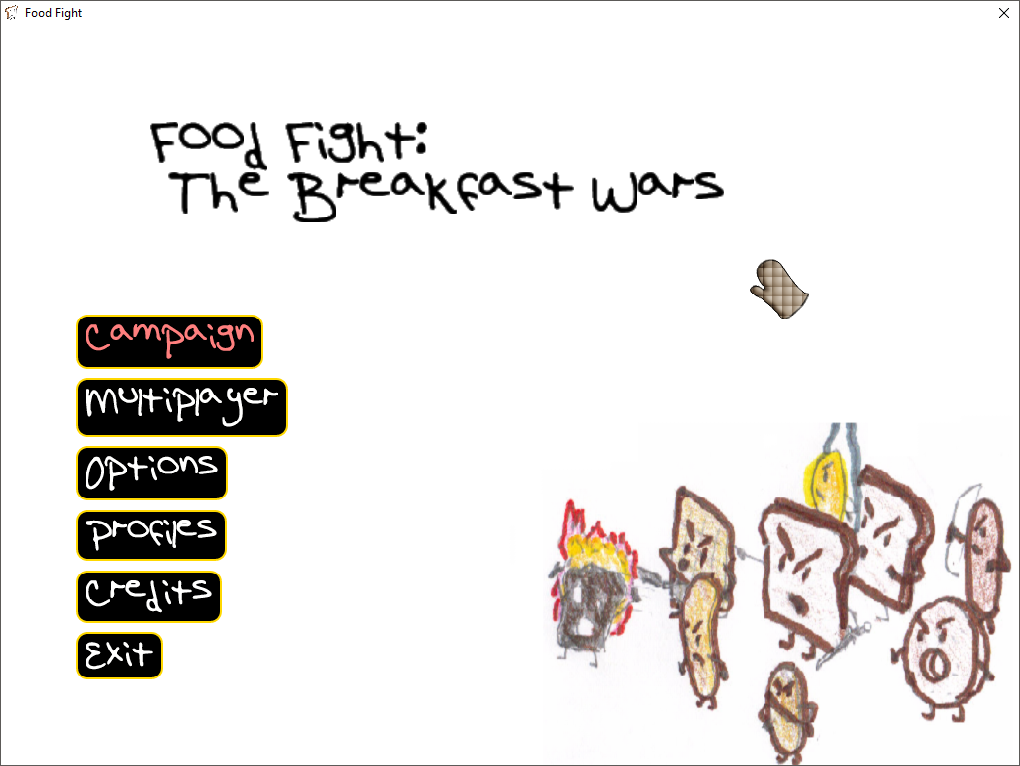 Food Fight
Food Fight:
The Breakfast Wars
Campaign
Multiplayer
Options
Profiles
Credits
Exit